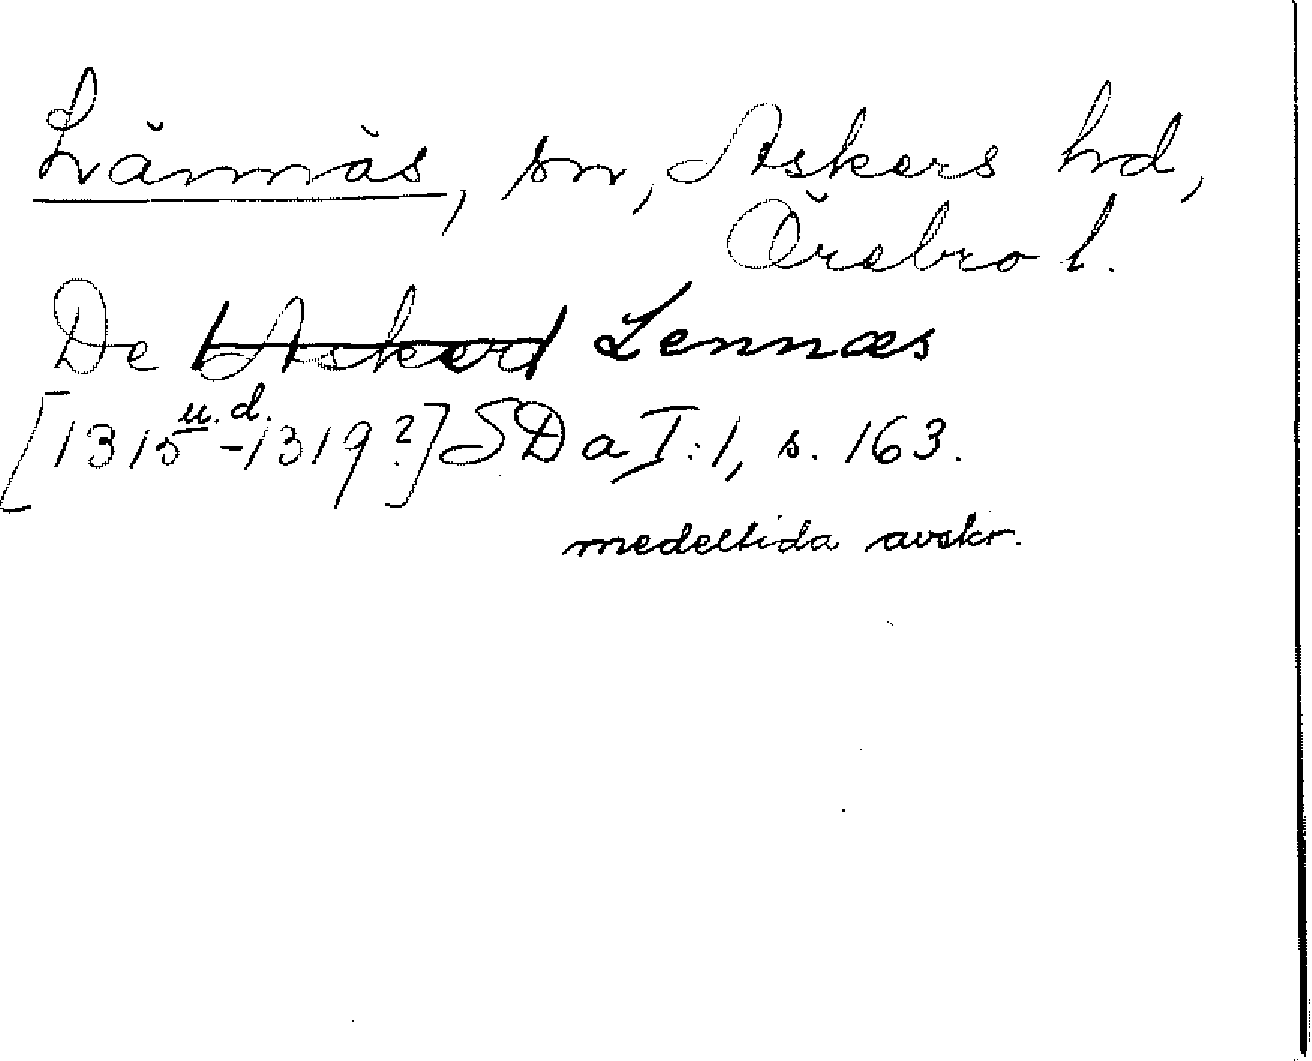 Lännäs, sn, Askers hd,
Örebro l.
De Askerd Lennæs
[1315 u.d. -1319?] SDa I:1, s. 163.
medeltida avskr.